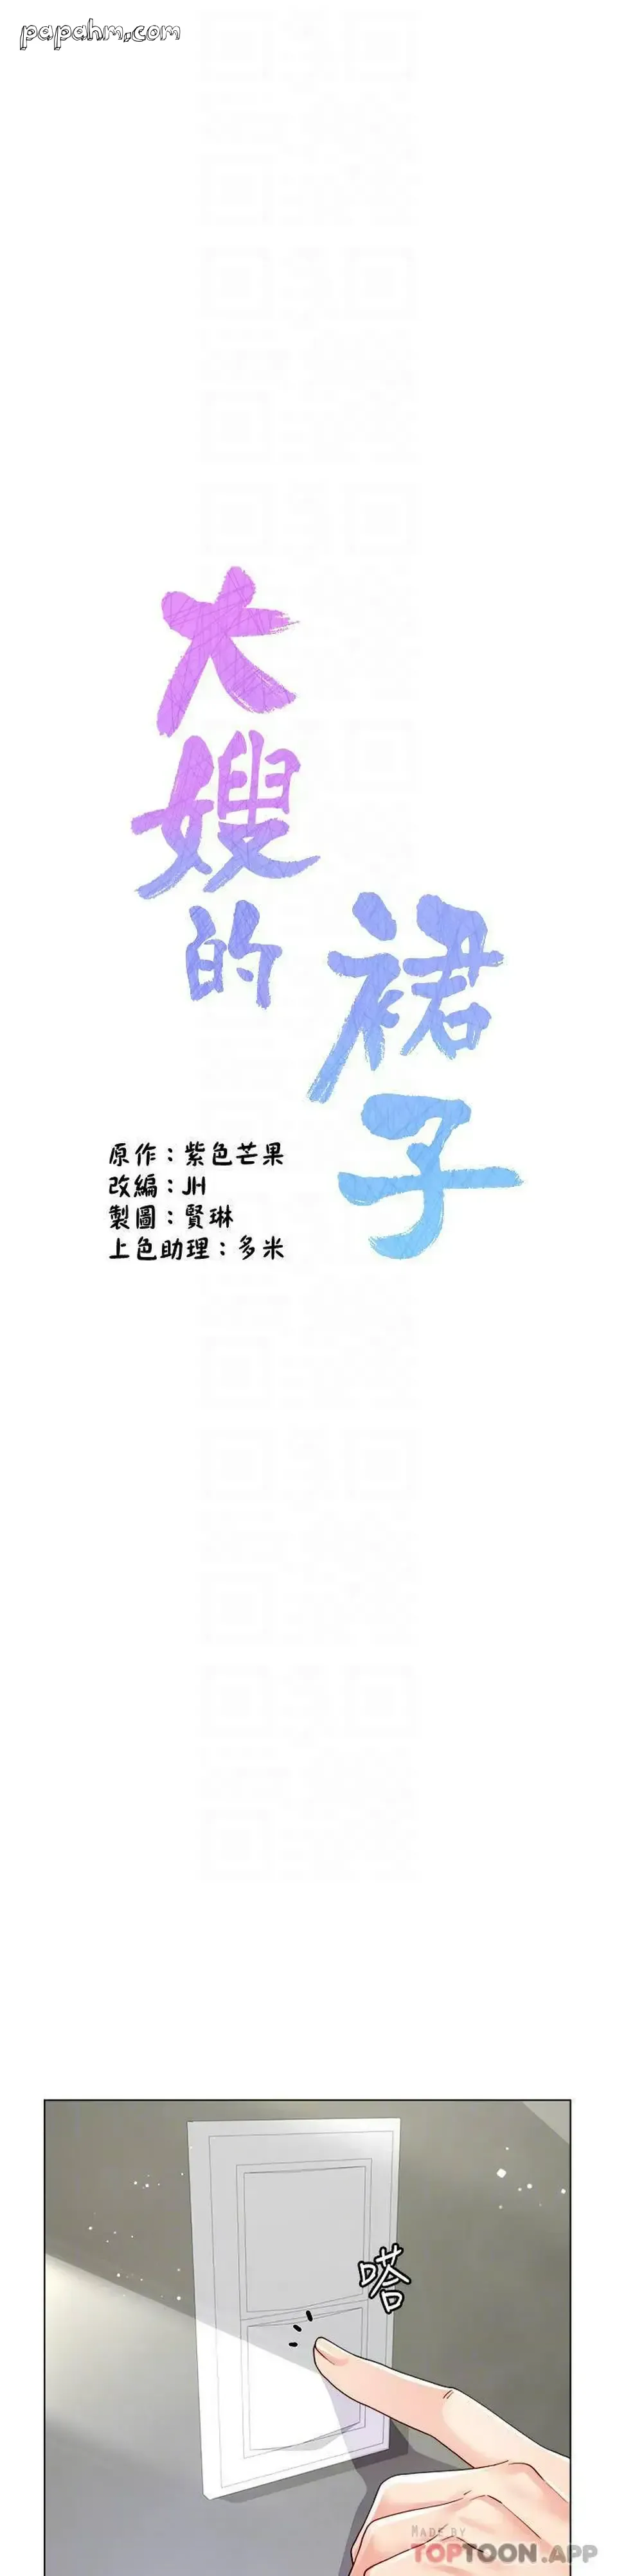 papahm.com
大嫂的
裙子
原作：紫色芒果
改編：JH
製圖：賢琳
上色助理：多米
嗒
MADE BY
TOPTOON.APP